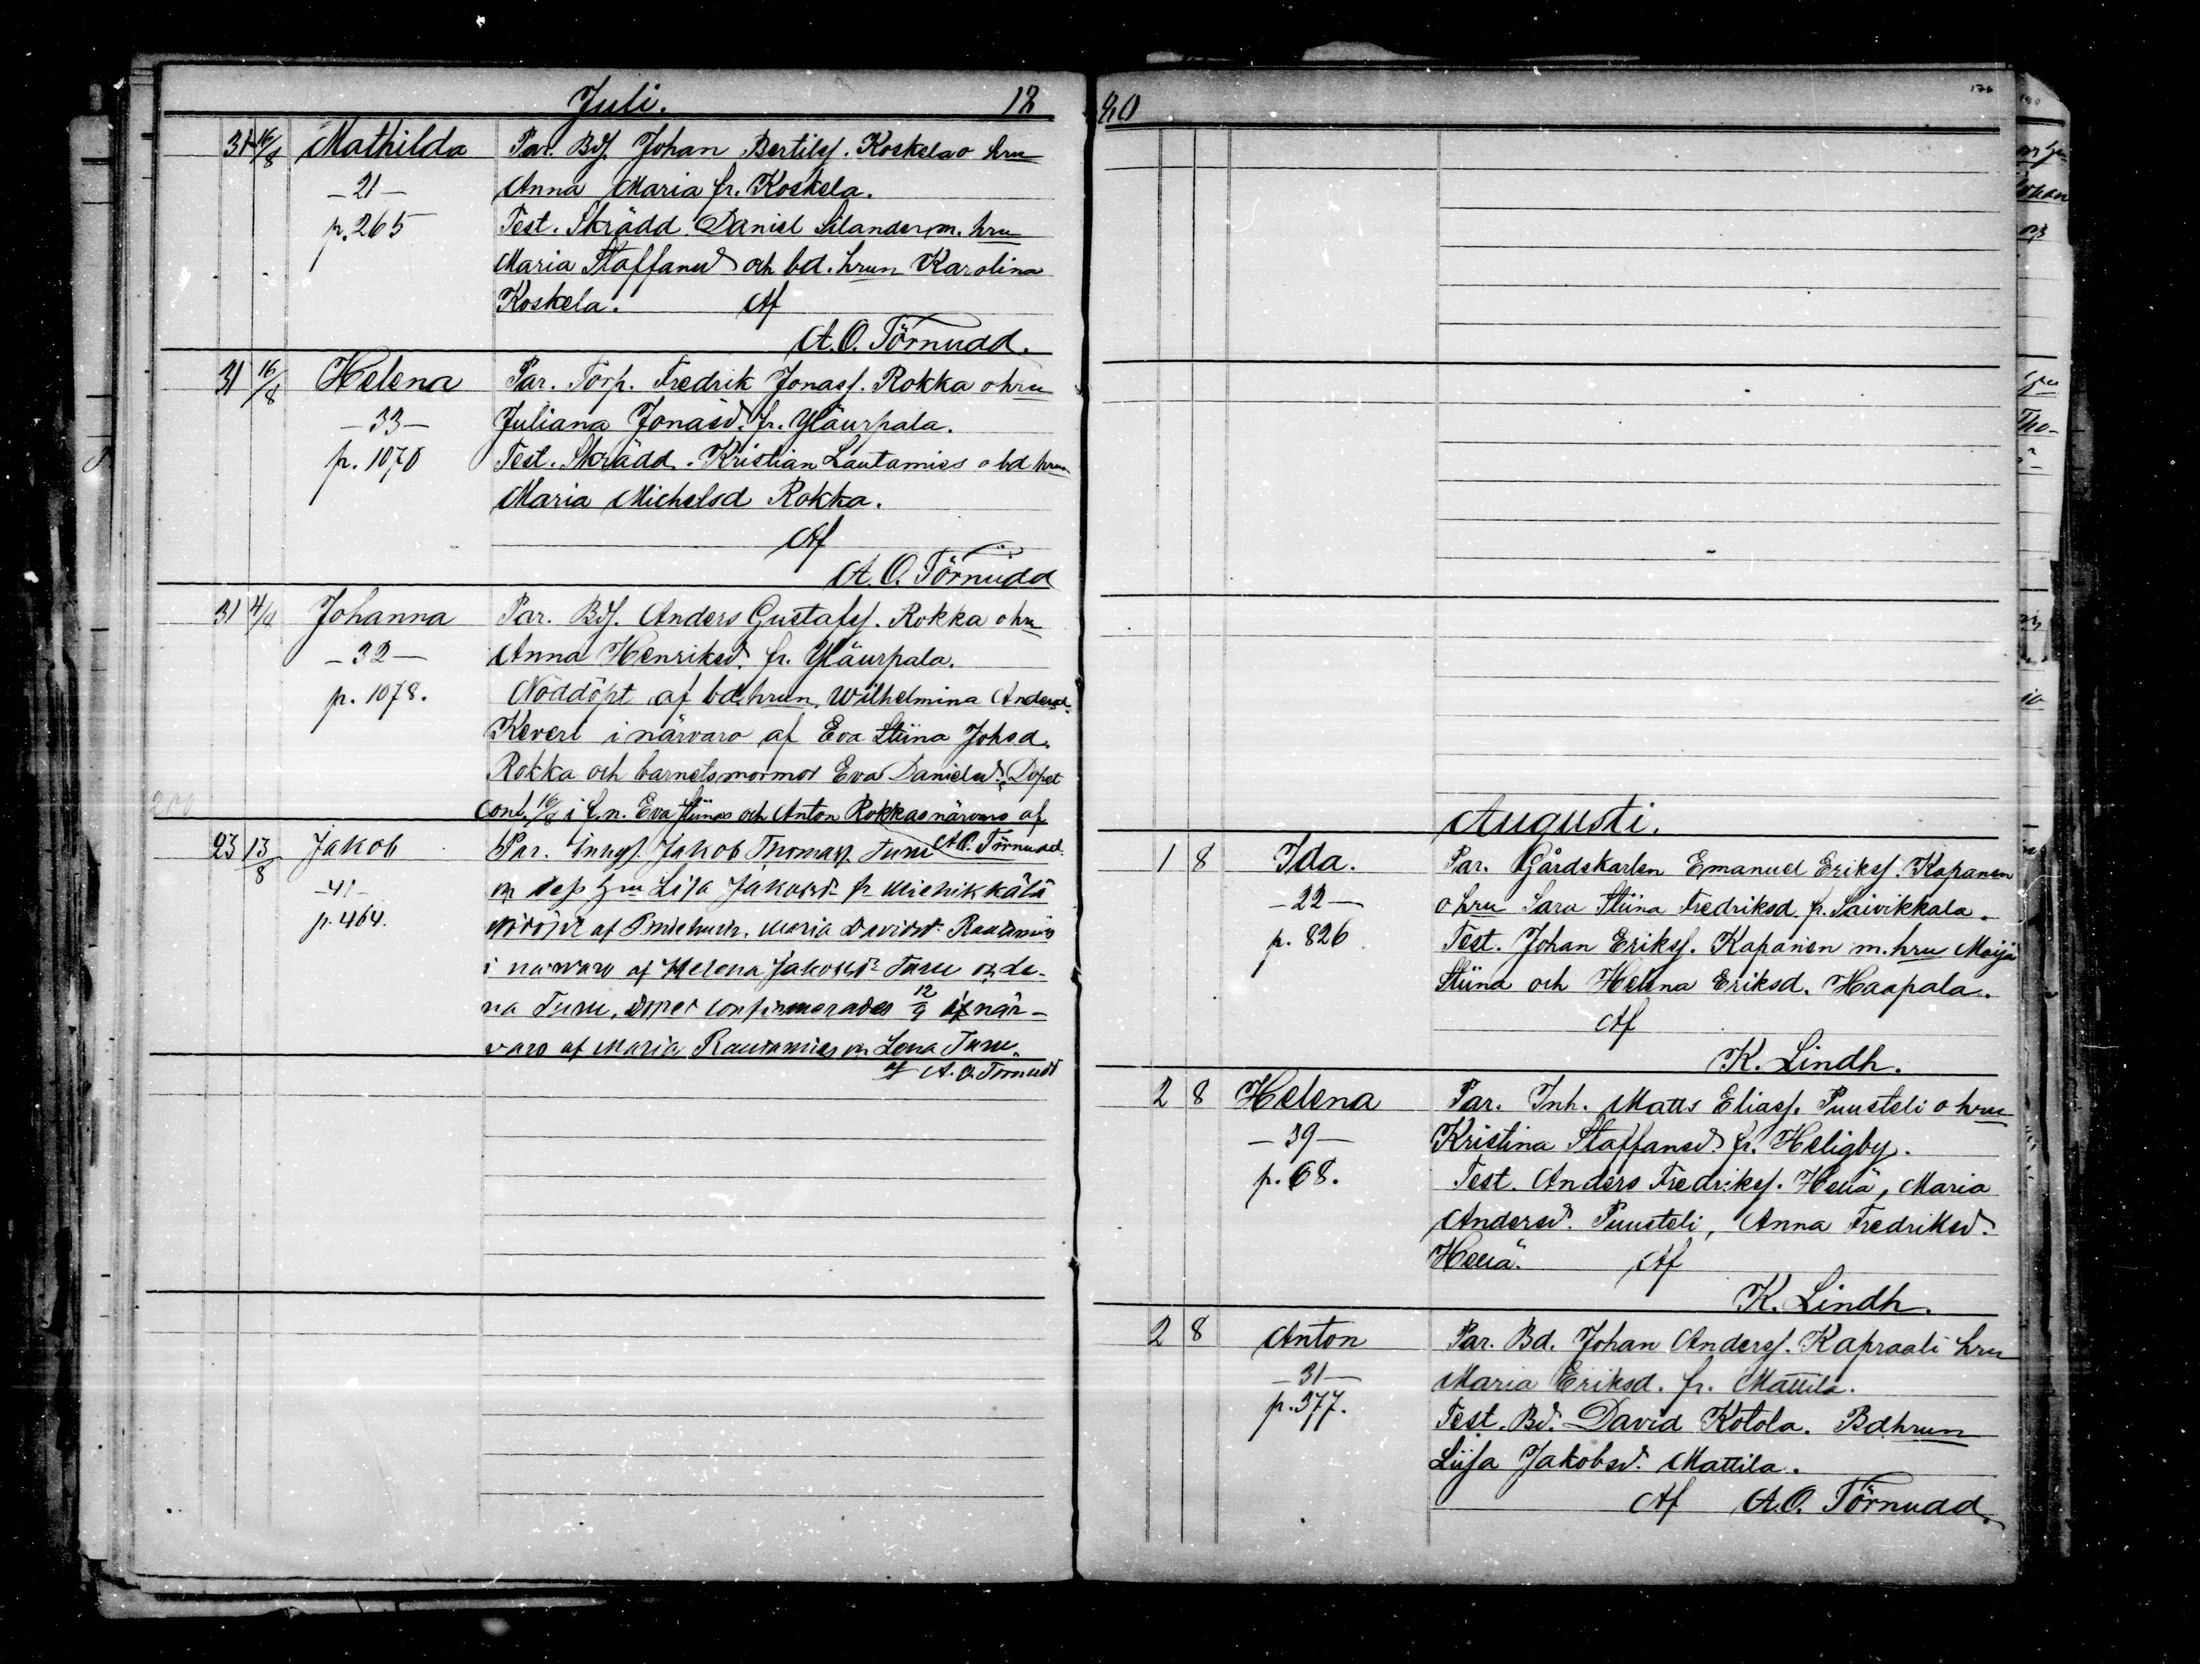 Juli. 18
31 16/8 Mathilda Par. Bdf. Johan Bertilsf. Koskela o hru
—21— Anna Maria fr. Koskela.
p. 265 Test. Skrädd. Daniel Silander m. hru
Maria Staffansd och bd. hrun Karolina
Koskela. Af
A. O. Törnudd.
31 16/8 Helena Par. Torp. Fredrik Jonasf. Rokka o hru
—33— Juliana Jonasd. fr. Yläurpala.
p. 1070 Test. Skrädd. Kristian Lautamies o bd hrun
Maria Michelsd Rokka.
Af
A. O. Törnudd
31 4/8 Johanna Par. Bdf. Anders Gustafsf. Rokka o hru
—32— Anna Henriksd. fr. Yläurpala.
p. 1078. Nöddöpt af bdehrun. Wilhelmina Andersd.
Keveri i närvaro af Eva Stiina Johsd.
Rokka och barnets mormor Eva Danielsd. Dopet
Conf. 16/8 i f. n. Eva Stiinas och Anton Rokkas närvaro af
A. O. Törnudd.
23 13/8 Jakob Par. Inhys. Jakob Thomasf. Turu
—41— o dess hru Lisa Jakobsd fr Miehikkälä
p. 464. Nöddöpt af Maria Davidsd. Rautamies
i närvaro af Helena Jakobsd Turu o Le-
na Turu, Dopet confirmerades 12/9 i när-
varo af Maria Rautamies o Lena Turu.
af A. O. Törnudd
80
Augusti.
1 8 Ida. Par. Gårdskarlen Emanuel Eriksf. Kapanen
—22— o hru Sara Stiina Fredriksd fr. Säivikkala.
p. 826 Test. Johan Eriksf. Kapanen m. hru Maija
Stiina och Helena Eriksd. Haapala.
Af
K. Lindh.
2 8 Helena Par. Inh. Matts Eliasf. Puusteli o hru
—39— Kristina Staffansd. fr. Heligby.
p. 68. Test. Anders Fredriksf. Heiiä, Maria
Andersd. Puusteli, Anna Fredriksd.
Heiiä. Af
K. Lindh.
2 8 Anton Par. Bd. Johan Andersf. Kapraali hru
—31— Maria Eriksd. fr. Mattila.
p. 377. Test. Bd. David Kotola. Bdhrun
Liisa Jakobsd. Mattila.
Af A. O. Törnudd.